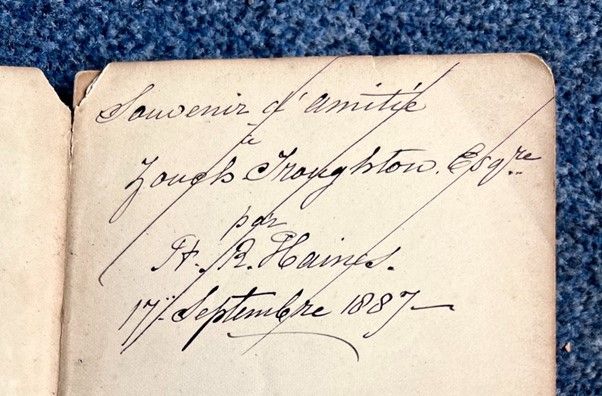 Souvenir d'amitié
à
Zouch Troughton. Esqre
par
H. R. Haines.
17 Septembre 1887